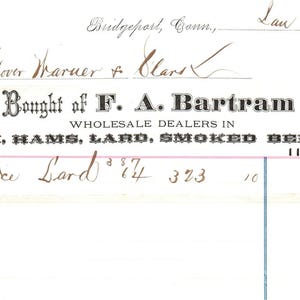 Bridgeport, Conn., Jan
over Warner & Clark
Bought of F. A. Bartram
WHOLESALE DEALERS IN
, HAMS, LARD, SMOKED BE
11
ce Lard 387 64 323 10